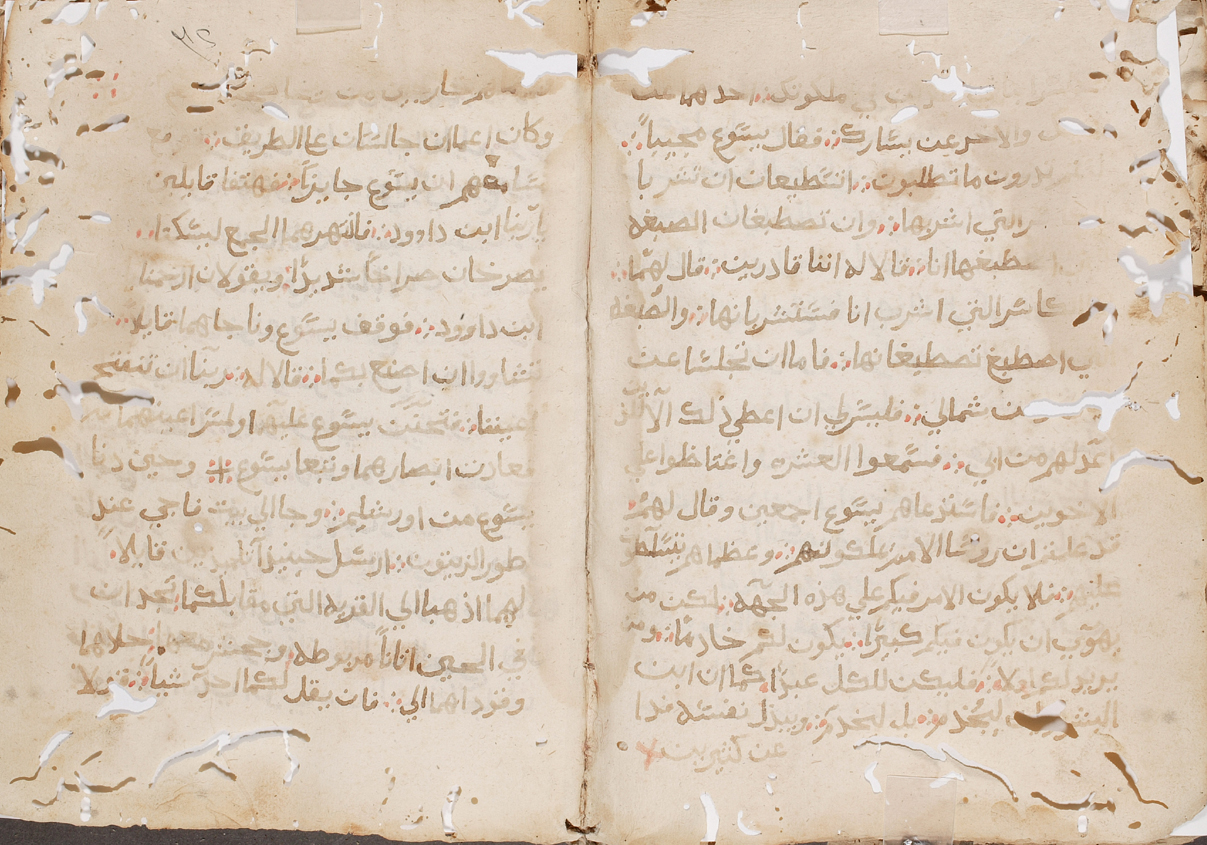 في ملكوتك احدهما عن
والاخر عن يسارك فقال يسوع مجيباً
تدرون ما تطلبون اتستطيعان ان تشربا
التي اشربها وان تصطبغان الصبغه
اصطبغها انا قالا له اننا قادرين قال لهما
الكاس التي اشرب انا فستشربانها والصبغه
التي اصطبغ تصطبغانها فاما ان تجلسا عن
شمالي فليس لي ان اعطي ذلك الا للذين
اعد لهم من ابي فسمعوا العشره واغتاظوا علي
الاخوين فاستدعاهم يسوع اجمعين وقال لهم
قد علمتم ان روسا الامم يملكونهم وعظماهم يتسلطوا
عليهم فلا يكون الامر فيكم علي هذه الجهه لكن من
يهوي ان يكون فيكم كبيرًا يكون لكم خادمًا ومن
يريد لكم اولا فليكن للكل عبدًا كما ان ابن
البشر ليُخدم بل ليخدم ويبذل نفسه فدا
عن كثيرين
من
وكان اعمان جالسان ع الطريف
يسوع جايزاً فهتفا قايلين
يا ربنا ابن داوود فانتهرهما الجمع ليسكتا
يصرخان صراخاً شديدًا ويقولان ارحمنا
ابن داوود فوقف يسوع وناجاهما قايلاً
تشاووا ان اصنع بكما قالا له ربنا ان تنفتح
اعيننا فتحنن يسوع عليهما ولمس اعينهما
فعادت ابصارهما وتبعا يسوع وحين دنا
يسوع من اورشليم وجا الي بيت فاجي عند
طور الزيتون ارسل حينيذ تلميذين قايلاً
لهما اذهبا الي القريه التي مقابلكما تجد ان
في الحين اتاناً مربوطه وجحش معها حلاهما
وقودا هما الي فان يقل لكما احد شياً قولا